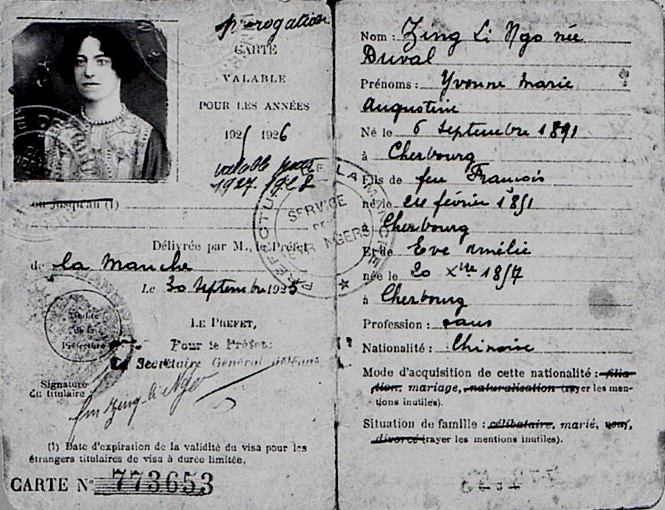 prorogation
CARTE
VALABLE
POUR LES ANNÉES
1925 1926
valable pour
1927. 1928
ou jusqu'au (1)
Délivrée par M., le Préfet
de la Manche
Le 30 Septembre 1925
LE PREFET,
Pour le Préfet:
Le Secrétaire Général délégué
Timbre
de la
Préfecture
Signature
du titulaire
(1) Date d'expiration de la validité du visa pour les
étrangers titulaires de visa à durée limitée.
CARTE N° 773653
PREFECTURE DE LA MANCHE
SERVICE
DES
ETRANGERS
Nom : Zeng Li Ngo née
Duval
Prénoms : Yvonne Marie
Augustine
Né le 6 Septembre 1891
à Cherbourg
Fils de feu François
né le 24 février 1851
à Cherbourg
Et de Eve Amélie
née le 20 Xbre 1857
à Cherbourg
Profession : sans
Nationalité : Chinoise
Mode d'acquisition de cette nationalité : filia-
tion, mariage, naturalisation (rayer les men-
tions inutiles).
Situation de famille : célibataire, marié, veuf,
divorcé (rayer les mentions inutiles).